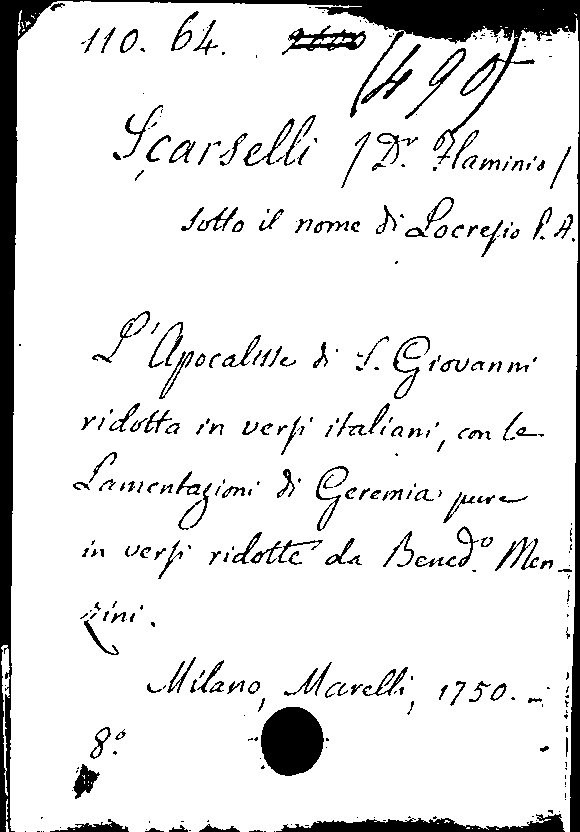 110. 64. (490)
Scarselli /Dr. Flaminio/
sotto il nome di Locresio P. A.
L'Apocalisse di S. Giovanni
ridotta in versi italiani, con le
Lamentazioni di Geremia pure
in versi ridotte da Bened.o Men-
zini.
Milano, Marelli, 1750.
8.o